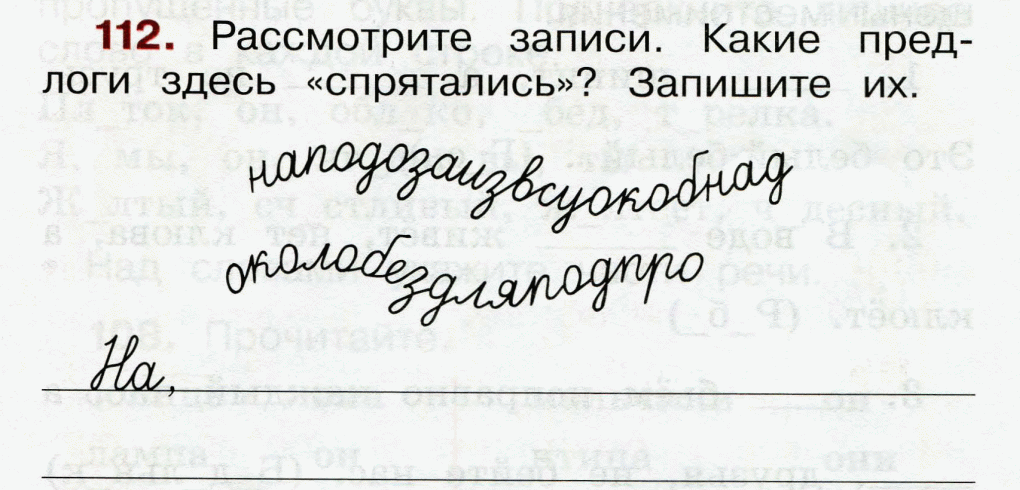 112. Рассмотрите записи. Какие пред-
логи здесь «спрятались»? Запишите их.
наподозаизвсуокобнад
околобездляподпро
На,